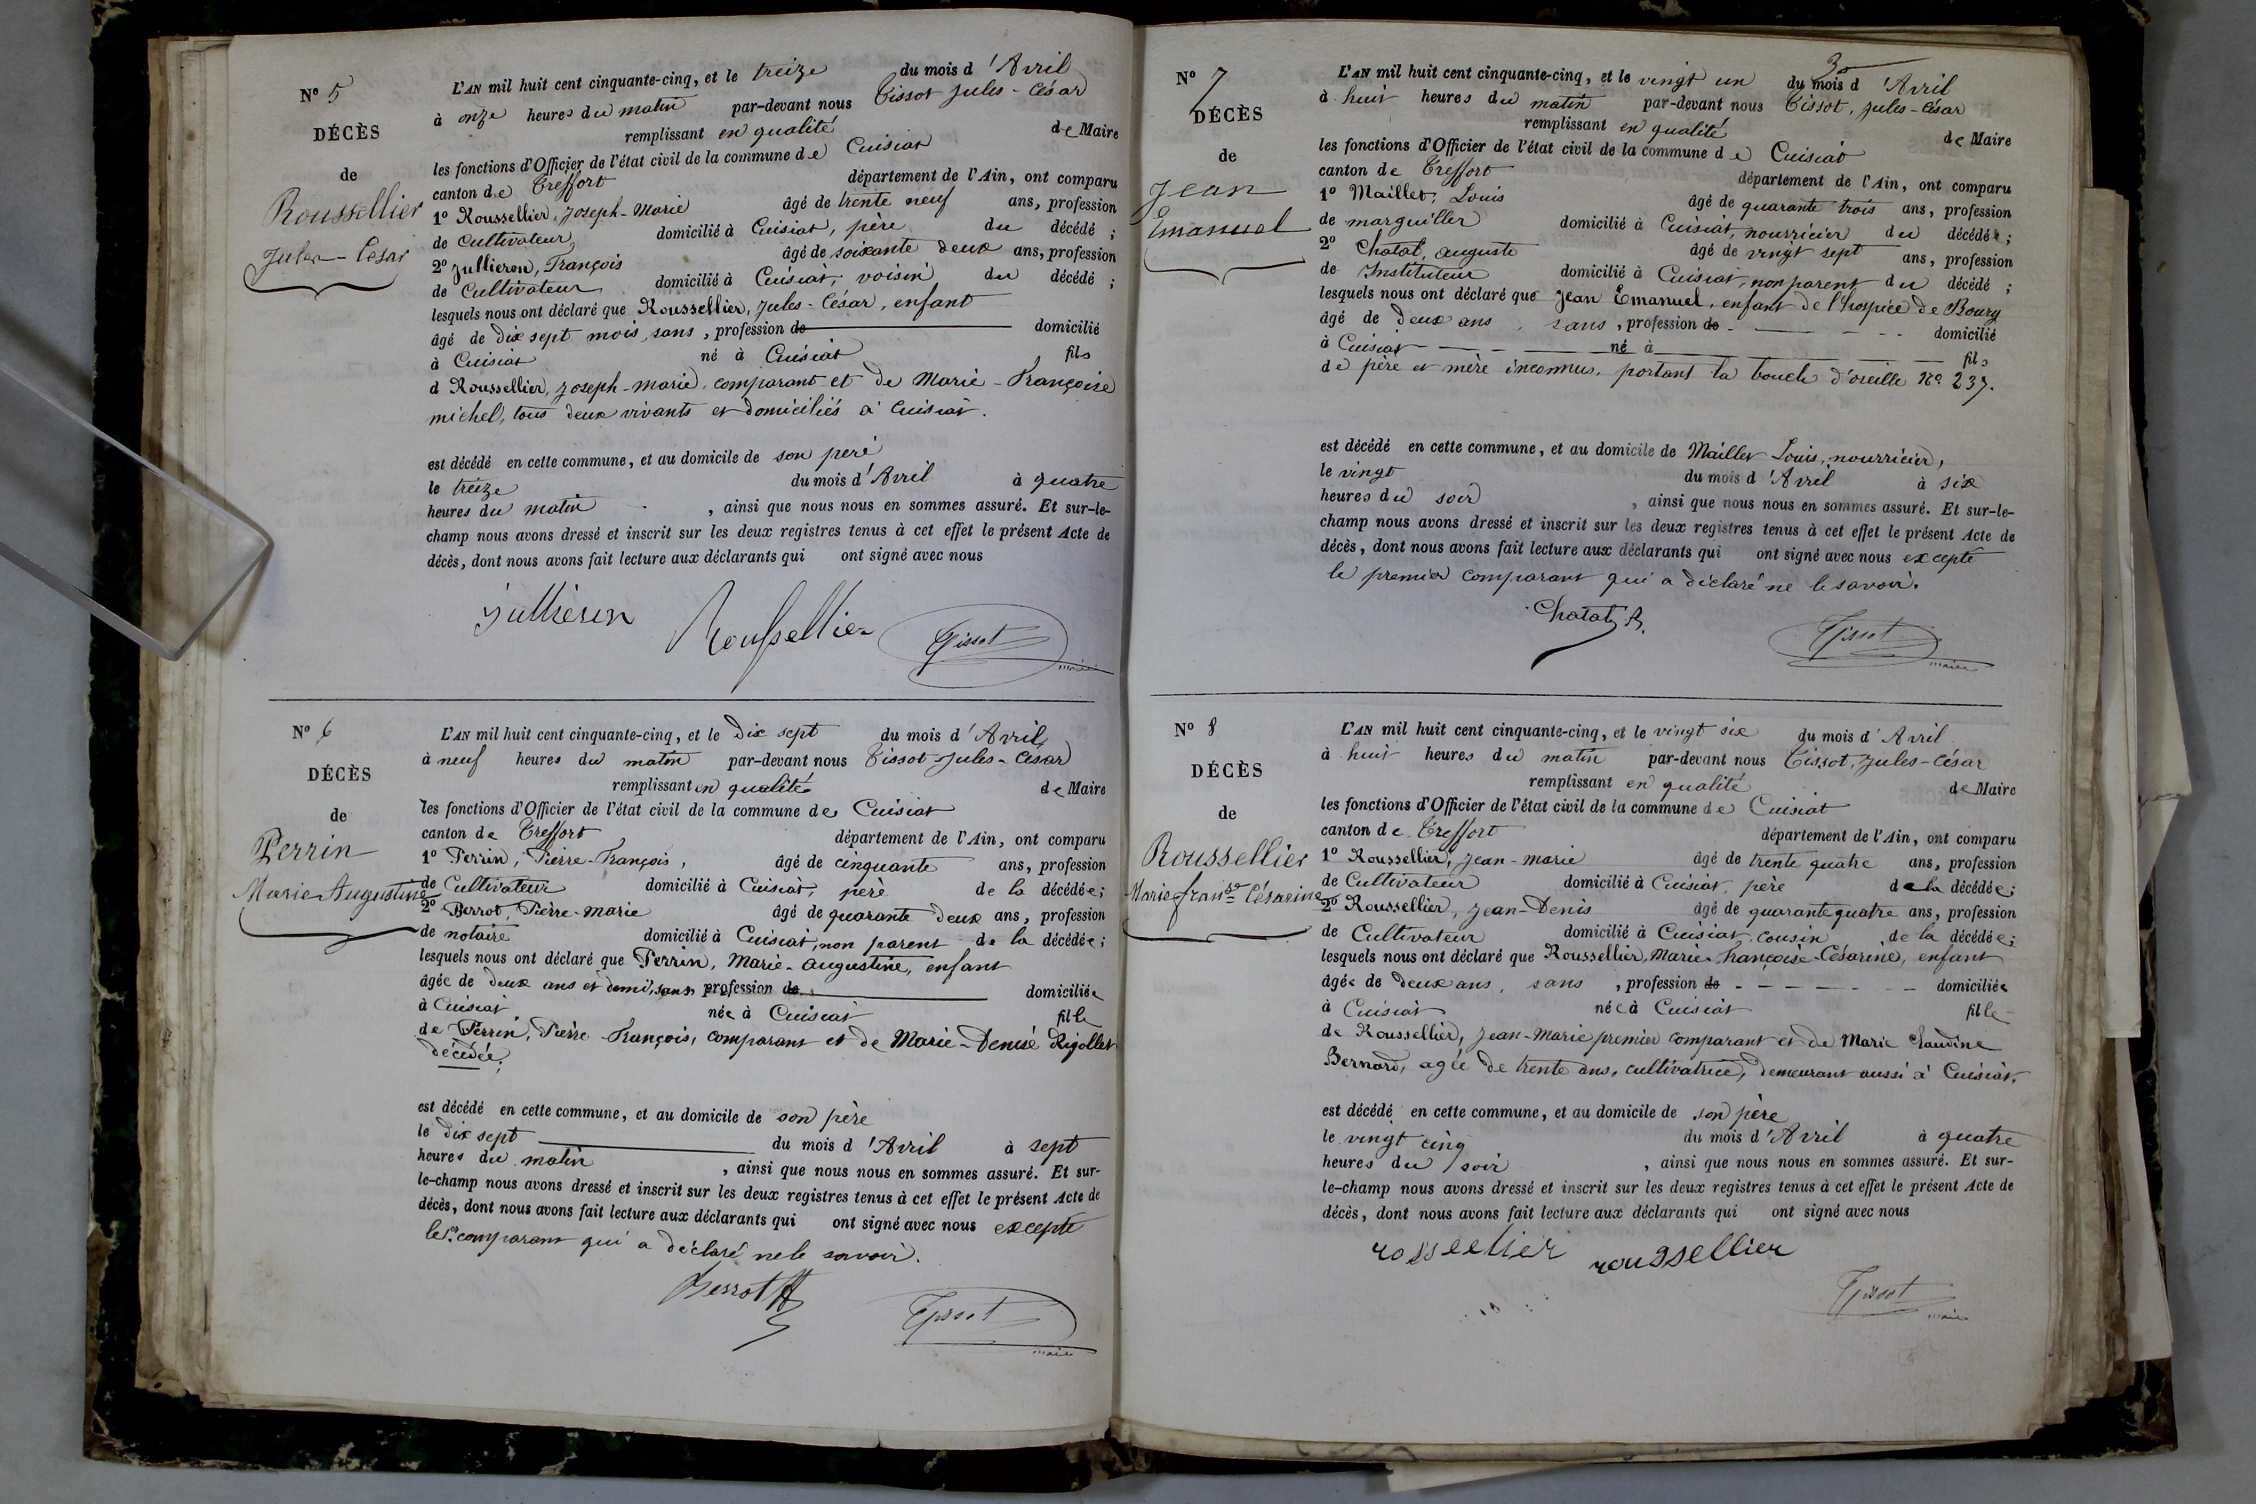 N° 5
DÉCÈS
de
Roussellier
Jules-César
L'AN mil huit cent cinquante-cinq, et le treize du mois d'Avril
à onze heures du matin par-devant nous Tissot Jules-César
remplissant en qualité de Maire
les fonctions d'Officier de l'état civil de la commune de Cuisiat
canton de Treffort département de l'Ain, ont comparu
1° Roussellier, Joseph-Marie âgé de trente neuf ans, profession
de Cultivateur, domicilié à Cuisiat, père du décédé ;
2° Jullieron, François âgé de soixante deux ans, profession
de Cultivateur domicilié à Cuisiat, voisin du décédé ;
lesquels nous ont déclaré que Roussellier, Jules-César, enfant
âgé de dix sept mois, sans, profession de domicilié
à Cuisiat né à Cuisiat fils
d Roussellier, Joseph-marie, comparant et de Marie-Françoise
michel, tous deux vivants et domiciliés à Cuisiat.
est décédé en cette commune, et au domicile de son père
le treize du mois d'Avril à quatre
heures du matin, ainsi que nous nous en sommes assuré. Et sur-le-
champ nous avons dressé et inscrit sur les deux registres tenus à cet effet le présent Acte de
décès, dont nous avons fait lecture aux déclarants qui ont signé avec nous
Jullieron Roussellier Tissot
maire
N° 6
DÉCÈS
de
Perrin
Marie Augustine
L'AN mil huit cent cinquante-cinq, et le dix sept du mois d'Avril
à neuf heures du matin par-devant nous Tissot Jules-César
remplissant en qualité de Maire
les fonctions d'Officier de l'état civil de la commune de Cuisiat
canton de Treffort département de l'Ain, ont comparu
1° Perrin, Pierre-François, âgé de cinquante ans, profession
de Cultivateur domicilié à Cuisiat, père de la décédée ;
2° Perrot, Pierre-Marie âgé de quarante deux ans, profession
de notaire domicilié à Cuisiat, non parent de la décédée ;
lesquels nous ont déclaré que Perrin, Marie-Augustine, enfant
âgée de deux ans et demi, sans profession de domiciliée
à Cuisiat née à Cuisiat fille
de Perrin, Pierre François, comparant et de Marie-Denise Rigollet
décédée.
est décédé en cette commune, et au domicile de son père
le dix sept du mois d'Avril à sept
heures du matin, ainsi que nous nous en sommes assuré. Et sur-
le-champ nous avons dressé et inscrit sur les deux registres tenus à cet effet le présent Acte de
décès, dont nous avons fait lecture aux déclarants qui ont signé avec nous excepté
le 1er comparant qui a déclaré ne le savoir.
Perrot Tissot
maire
N° 7
DÉCÈS
de
Jean
Emanuel
L'AN mil huit cent cinquante-cinq, et le vingt un du mois d'Avril
à huit heures du matin par-devant nous Tissot, Jules-César
remplissant en qualité de Maire
les fonctions d'Officier de l'état civil de la commune de Cuisiat
canton de Treffort département de l'Ain, ont comparu
1° Maillet, Louis âgé de quarante trois ans, profession
de marguiller domicilié à Cuisiat, nourricier du décédé ;
2° Chatat, auguste âgé de vingt sept ans, profession
de Instituteur domicilié à Cuisiat, non parent du décédé ;
lesquels nous ont déclaré que Jean Emanuel, enfant de l'hospice de Bourg
âgé de deux ans, sans, profession de domicilié
à Cuisiat né à fils
de père et mère inconnus, portant la boucle d'oreille N° 237.
est décédé en cette commune, et au domicile de Maillet Louis, nourricier,
le vingt du mois d'Avril à six
heures du soir, ainsi que nous nous en sommes assuré. Et sur-le-
champ nous avons dressé et inscrit sur les deux registres tenus à cet effet le présent Acte de
décès, dont nous avons fait lecture aux déclarants qui ont signé avec nous excepté
le premier comparant qui a déclaré ne le savoir.
Chatat A. Tissot
maire
N° 8
DÉCÈS
de
Roussellier
Marie franse Césarine
L'AN mil huit cent cinquante-cinq, et le vingt six du mois d'Avril
à huit heures du matin par-devant nous Tissot, Jules-César
remplissant en qualité de Maire
les fonctions d'Officier de l'état civil de la commune de Cuisiat
canton de Treffort département de l'Ain, ont comparu
1° Roussellier, Jean-marie âgé de trente quatre ans, profession
de Cultivateur domicilié à Cuisiat, père de la décédée ;
2° Roussellier, Jean-Denis âgé de quarante quatre ans, profession
de Cultivateur domicilié à Cuisiat cousin de la décédée ;
lesquels nous ont déclaré que Roussellier, Marie-Françoise-Césarine, enfant
âgée de deux ans, sans, profession de domiciliée
à Cuisiat née à Cuisiat fille
de Roussellier, Jean-Marie premier comparant et de Marie Claudine
Bernard, agée de trente ans, cultivatrice, demeurant aussi à Cuisiat.
est décédé en cette commune, et au domicile de son père
le vingt cinq du mois d'Avril à quatre
heures du soir, ainsi que nous nous en sommes assuré. Et sur-
le-champ nous avons dressé et inscrit sur les deux registres tenus à cet effet le présent Acte de
décès, dont nous avons fait lecture aux déclarants qui ont signé avec nous
rossellier roussellier
Tissot
maire